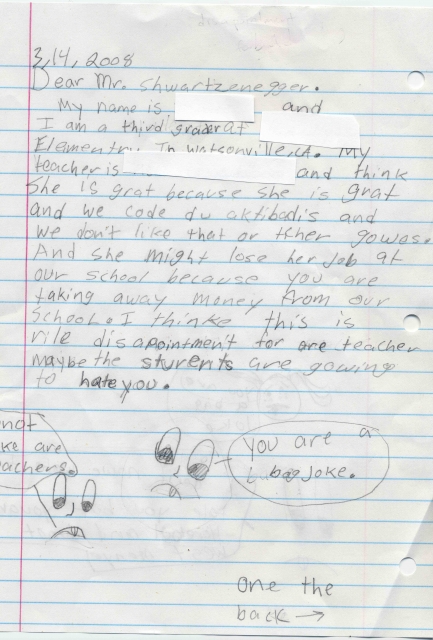 3,14, 2008
Dear Mr. Shwartzenegger.
My name is and
I am a third grader at
Elementry In Watsonville, CA. My
teacher is and think
She is grat because she is grat
and we code du aktibadis and
we don't like that or tcher gowas.
And she might lose her job at
our school because you are
taking away money from our
school. I thinke this is
rile disapointment for are teacher
maybe the sturents are gowing
to hate you.
not
ke are
achers.
you are a
joke.
one the
back →